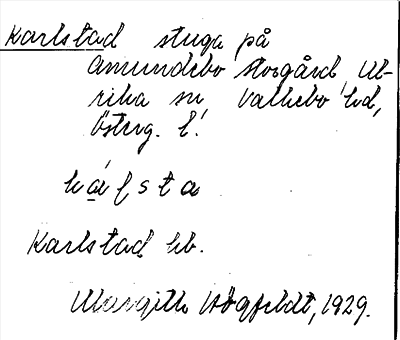 Karlstad stuga på
Amundebo storgård, Ul-
rika sn, Valkebo hd,
Österg. l.
kálsta
Karlstad hb.
Margith Högfeldt, 1929.